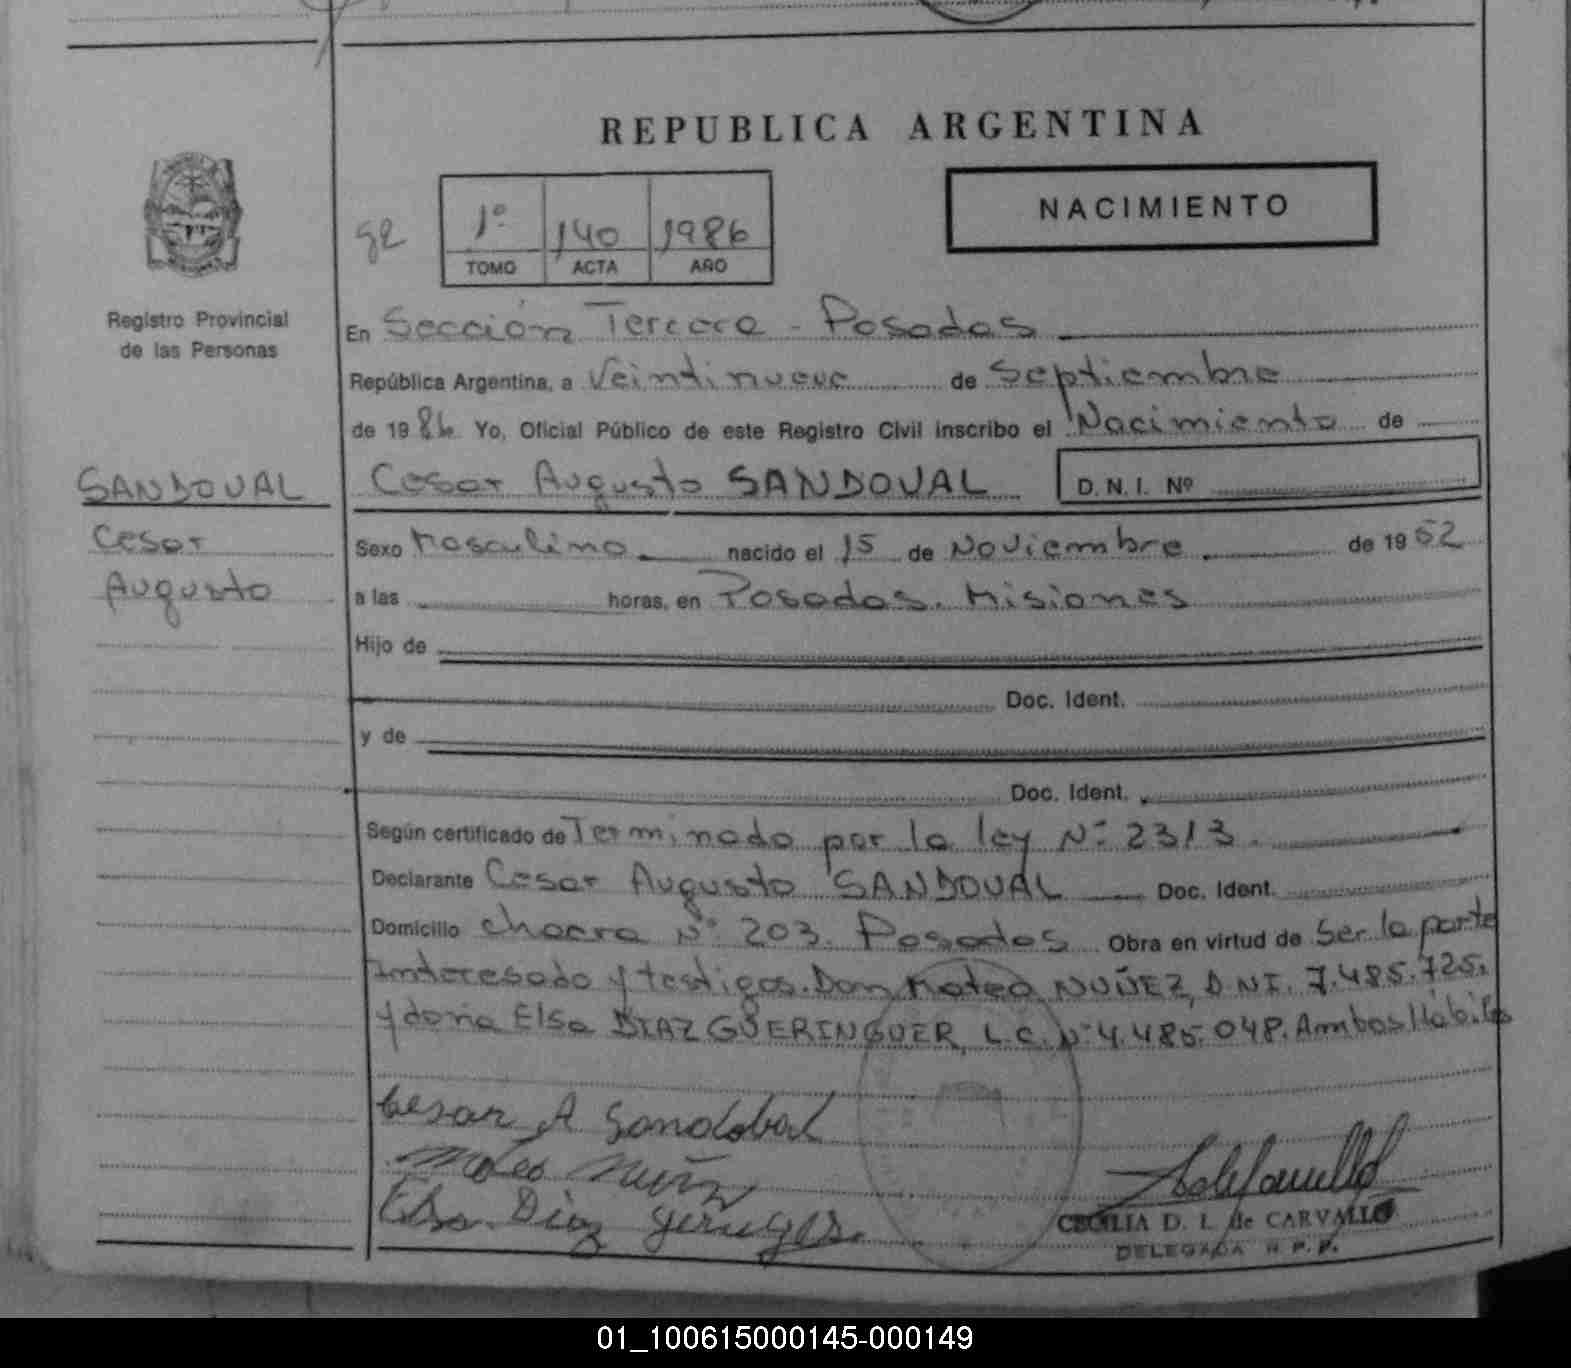 REPUBLICA ARGENTINA
NACIMIENTO
1º 140 1986
TOMO ACTA AÑO
Registro Provincial
de las Personas
En Sección Tercera - Posadas
República Argentina, a Veintinueve de Septiembre
de 1986 Yo, Oficial Público de este Registro Civil inscribo el Nacimiento de
SANDOVAL
Cesar
Augusto
Cesar Augusto SANDOVAL D. N. I. Nº
Sexo Masculino nacido el 15 de Noviembre de 1952
a las horas, en Posadas. Misiones
Hijo de
Doc. Ident.
y de
Doc. Ident.
Según certificado de Terminado por la ley Nº 2313.
Declarante Cesar Augusto SANDOVAL Doc. Ident.
Domicilio chacra Nº 203. Posadas Obra en virtud de Ser la parte
Interesada y testigos. Don Mateo NUÑEZ, D.NI. 7.485.725.
y doña Elsa DIAZ GUERINGUER, L.C. Nº 4.485.048. Ambos Hábiles
Cesar A Sandobal
Mateo Nuñez
Elsa Diaz
CECILIA D. L. de CARVALLO
DELEGADA R. P. P.
01_100615000145-000149